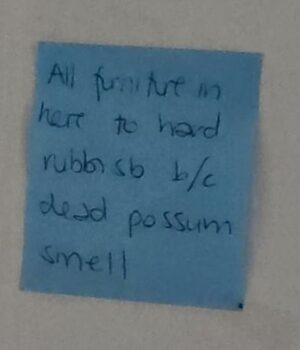 All furniture in
here to hard
rubbish b/c
dead possum
smell